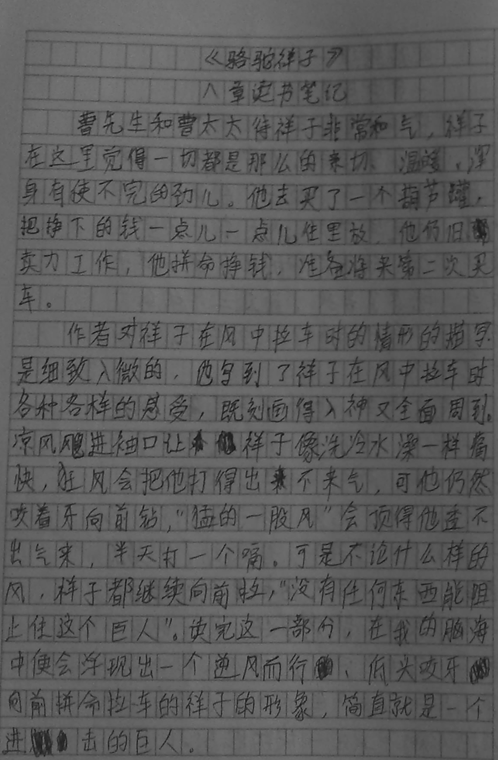 《骆驼祥子》
八章读书笔记
曹先生和曹太太待祥子非常和气，祥子
在这里觉得一切都是那么的亲切、温暖，浑
身有使不完的劲儿。他去买了一个闷葫芦罐，
把挣下的钱一点儿一点儿往里放，他仍旧
卖力工作，他拼命挣钱，准备将来第二次买
车。
作者对祥子在风中拉车时的情形的描写
是细致入微的，他写到了祥子在风中拉车时
各种各样的感受，既刻画得入神又全面周到。
凉风飕进袖口让祥子像洗冷水澡一样痛
快，狂风会把他打得出不来气，可他仍然
咬着牙向前钻，“猛的一股风”会顶得他透不
出气来，半天打一个嗝。可是不论什么样的
风，祥子都继续向前拉，“没有任何东西能阻
止住这个巨人”。读完这一部分，在我的脑海
中便会浮现出一个逆风而行、低头咬牙
向前拼命拉车的祥子的形象，简直就是一个
进击的巨人。